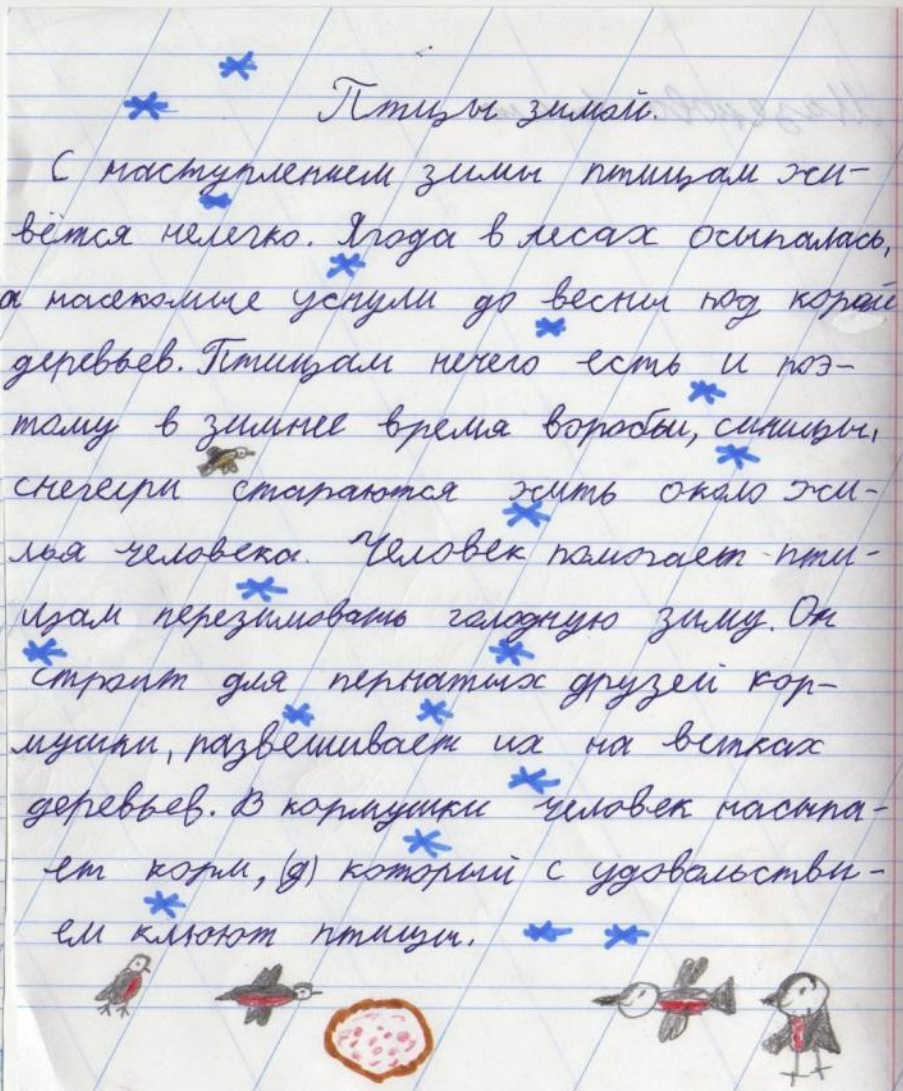 Птицы зимой.
С наступлением зимы птицам жи-
вётся нелегко. Ягода в лесах осыпалась,
а насекомые уснули до весны под корой
деревьев. Птицам нечего есть и поэ-
тому в зимнее время воробьи, синицы,
снегири стараются жить около жи-
лья человека. Человек помогает пти-
цам перезимовать голодную зиму. Он
строит для пернатых друзей кор-
мушки, развешивает их на ветках
деревьев. В кормушки человек насыпа-
ет корм, (д) который с удовольстви-
ем клюют птицы.